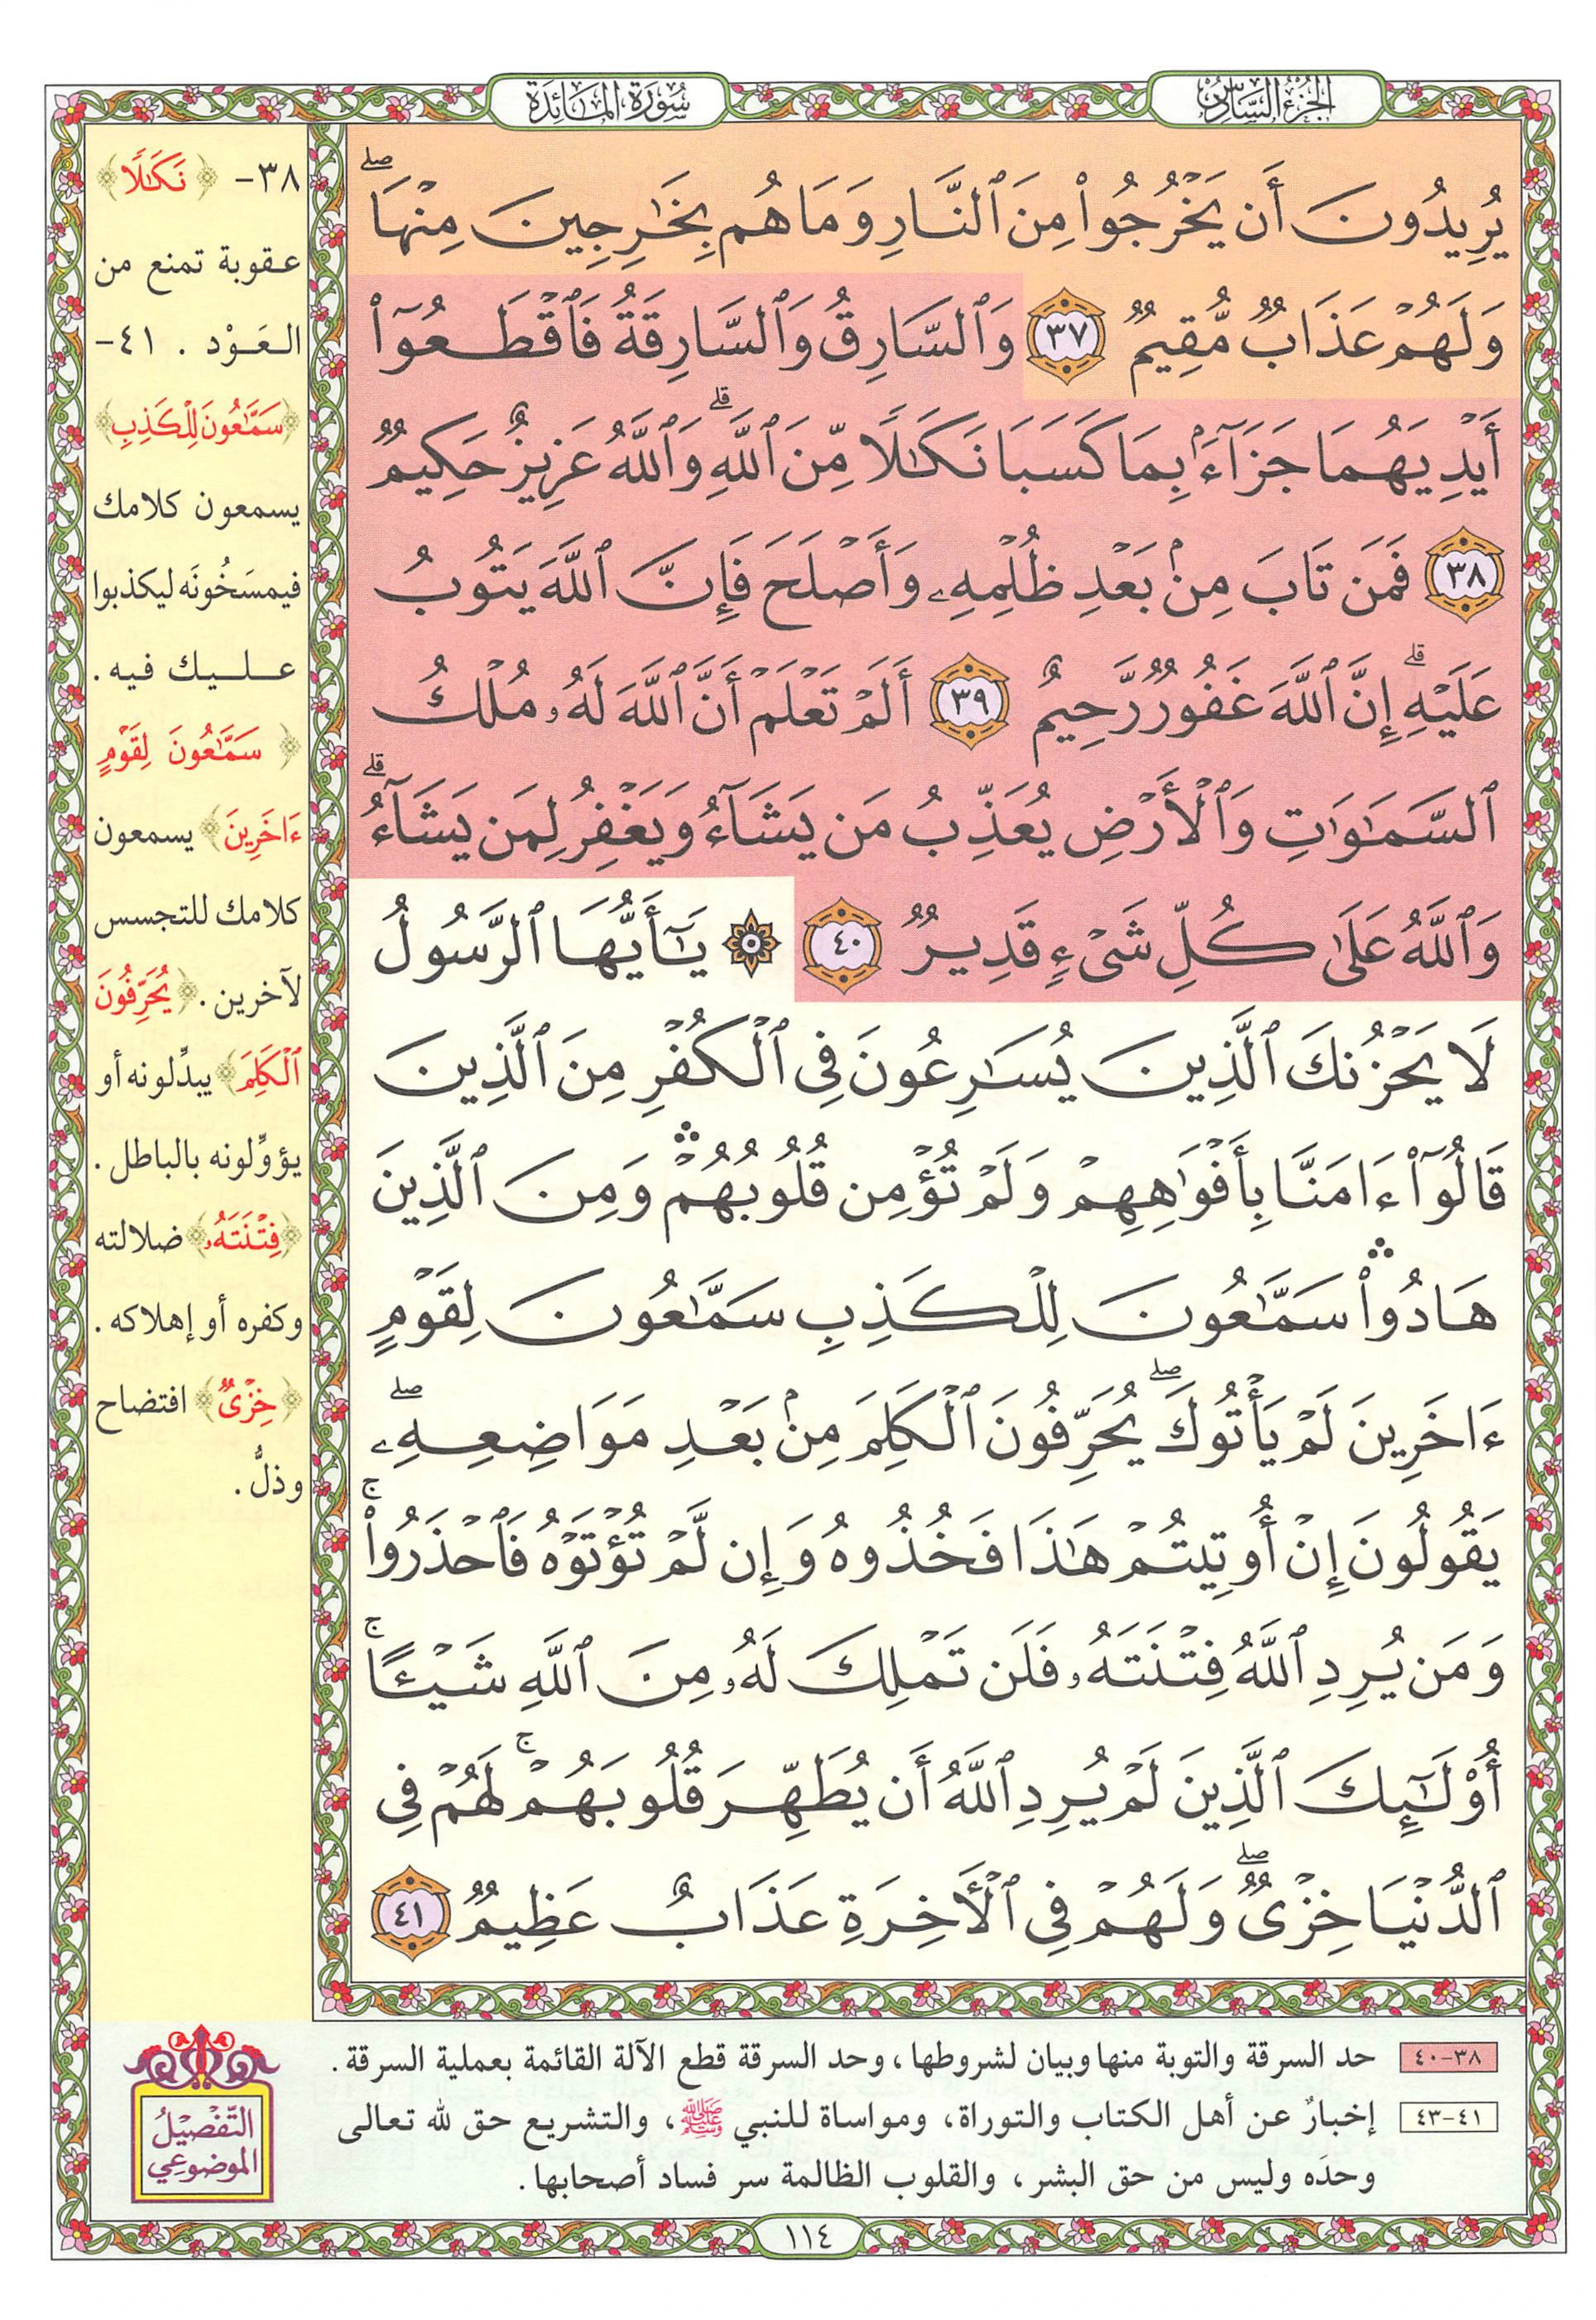 الجزء السادس
سورة المائدة
يُرِيدُونَ أَن يَخْرُجُوا۟ مِنَ ٱلنَّارِ وَمَا هُم بِخَـٰرِجِينَ مِنْهَا ۖ
وَلَهُمْ عَذَابٌ مُّقِيمٌ ٣٧ وَٱلسَّارِقُ وَٱلسَّارِقَةُ فَٱقْطَعُوٓا۟
أَيْدِيَهُمَا جَزَآءًۢ بِمَا كَسَبَا نَكَـٰلًا مِّنَ ٱللَّهِ ۗ وَٱللَّهُ عَزِيزٌ حَكِيمٌ
٣٨ فَمَن تَابَ مِنۢ بَعْدِ ظُلْمِهِۦ وَأَصْلَحَ فَإِنَّ ٱللَّهَ يَتُوبُ
عَلَيْهِ ۗ إِنَّ ٱللَّهَ غَفُورٌ رَّحِيمٌ ٣٩ أَلَمْ تَعْلَمْ أَنَّ ٱللَّهَ لَهُۥ مُلْكُ
ٱلسَّمَـٰوَٰتِ وَٱلْأَرْضِ يُعَذِّبُ مَن يَشَآءُ وَيَغْفِرُ لِمَن يَشَآءُ ۗ
وَٱللَّهُ عَلَىٰ كُلِّ شَىْءٍ قَدِيرٌ ٤٠ يَـٰٓأَيُّهَا ٱلرَّسُولُ
لَا يَحْزُنكَ ٱلَّذِينَ يُسَـٰرِعُونَ فِى ٱلْكُفْرِ مِنَ ٱلَّذِينَ
قَالُوٓا۟ ءَامَنَّا بِأَفْوَٰهِهِمْ وَلَمْ تُؤْمِن قُلُوبُهُمْ ۛ وَمِنَ ٱلَّذِينَ
هَادُوا۟ ۛ سَمَّـٰعُونَ لِلْكَذِبِ سَمَّـٰعُونَ لِقَوْمٍ
ءَاخَرِينَ لَمْ يَأْتُوكَ ۖ يُحَرِّفُونَ ٱلْكَلِمَ مِنۢ بَعْدِ مَوَاضِعِهِۦ ۖ
يَقُولُونَ إِنْ أُوتِيتُمْ هَـٰذَا فَخُذُوهُ وَإِن لَّمْ تُؤْتَوْهُ فَٱحْذَرُوا۟ ۚ
وَمَن يُرِدِ ٱللَّهُ فِتْنَتَهُۥ فَلَن تَمْلِكَ لَهُۥ مِنَ ٱللَّهِ شَيْـًٔا ۚ
أُو۟لَـٰٓئِكَ ٱلَّذِينَ لَمْ يُرِدِ ٱللَّهُ أَن يُطَهِّرَ قُلُوبَهُمْ ۚ لَهُمْ فِى
ٱلدُّنْيَا خِزْىٌ ۖ وَلَهُمْ فِى ٱلْـَٔاخِرَةِ عَذَابٌ عَظِيمٌ ٤١
٣٨- ﴿نَكَـٰلًا﴾
عقوبة تمنع من
العَوْد . ٤١-
﴿سَمَّـٰعُونَ لِلْكَذِبِ﴾
يسمعون كلامك
فيمسَخُونَه ليكذبوا
عليك فيه .
﴿سَمَّـٰعُونَ لِقَوْمٍ
ءَاخَرِينَ﴾ يسمعون
كلامك للتجسس
لآخرين . ﴿يُحَرِّفُونَ
ٱلْكَلِمَ﴾ يبدِّلونه أو
يؤوِّلونه بالباطل .
﴿فِتْنَتَهُۥ﴾ ضلالته
وكفره أو إهلاكه .
﴿خِزْىٌ﴾ افتضاح
وذلُّ .
٣٨-٤٠ حد السرقة والتوبة منها وبيان لشروطها ، وحد السرقة قطع الآلة القائمة بعملية السرقة .
٤١-٤٣ إخبارٌ عن أهل الكتاب والتوراة، ومواساة للنبي ﷺ ، والتشريع حق لله تعالى
وحدَه وليس من حق البشر ، والقلوب الظالمة سر فساد أصحابها .
التّفصيلُ
الموضوعي
١١٤